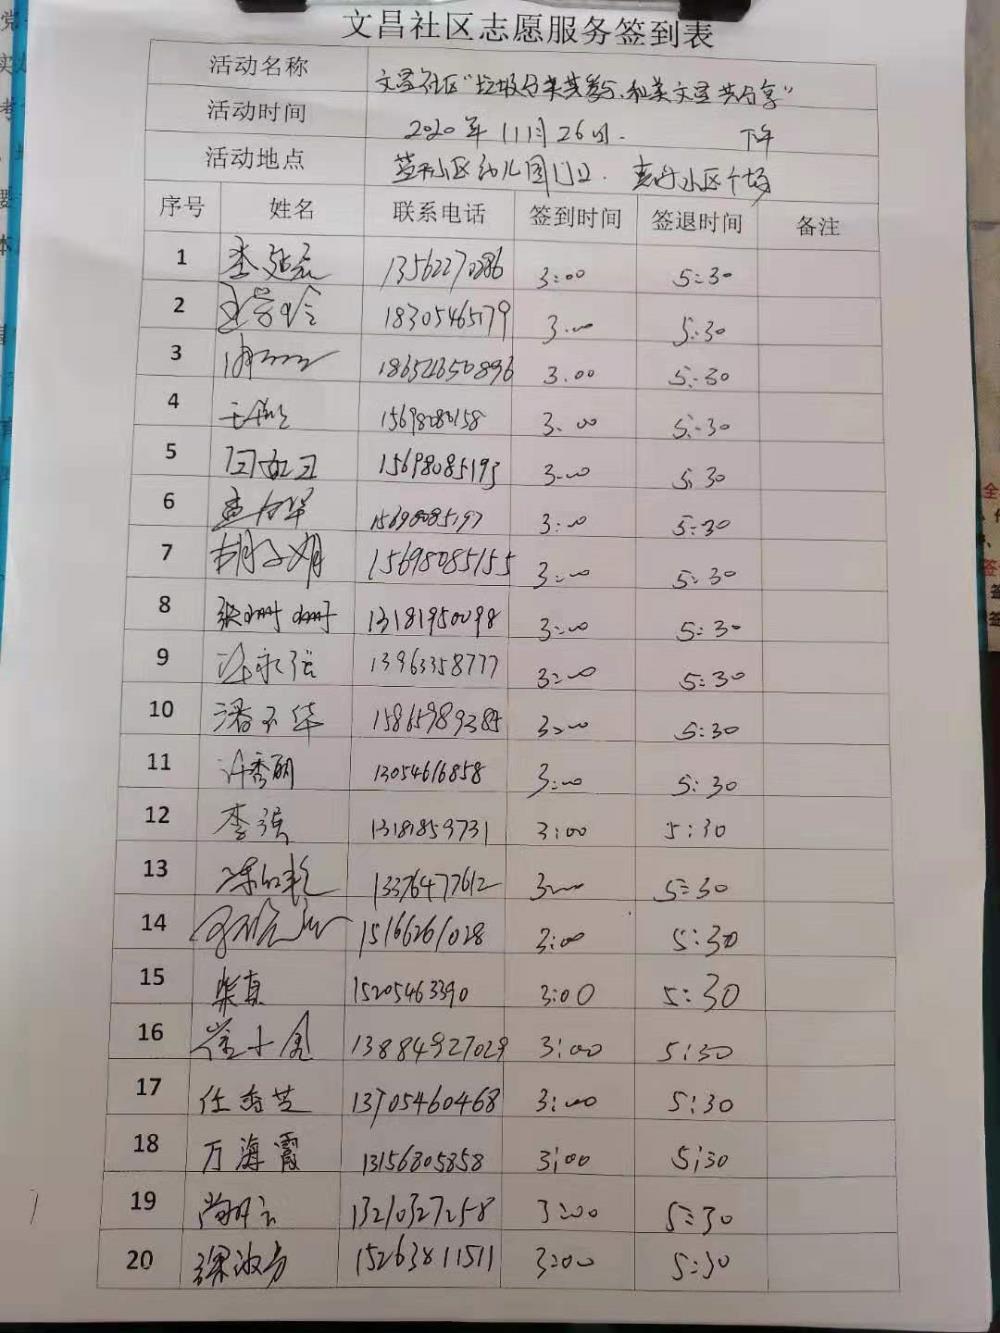 文昌社区志愿服务签到表
活动名称 文昌社区"垃圾分类共参与、和美文昌共分享"
活动时间 2020年11月26日. 下午
活动地点 小区幼儿园门口. 小区广场
序号 姓名 联系电话 签到时间 签退时间 备注
1 13562270286 3:00 5:30
2 18305465179 3:00 5:30
3 3.00 5:30
4 15698080158 3:00 5:30
5 15698085193 3:00 5:30
6 15698085197 3:00 5:30
7 胡子娟 15698085155 3:00 5:30
8 张珊珊 13181950098 3:00 5:30
9 许永强 13963358777 3:00 5:30
10 潘不华 15865989285 3:00 5:30
11 许秀丽 13054616858 3:00 5:30
12 李强 13181859731 3:00 5:30
13 陈红艳 13376477612 3:00 5:30
14 15166261028 3:00 5:30
15 柴真 15205463390 3:00 5:30
16 崔小凤 13884927029 3:00 5:30
17 任秀芝 13705460468 3:00 5:30
18 万海霞 13156805858 3:00 5:30
19 13210327258 3:00 5:30
20 梁淑芳 15263811511 3:00 5:30